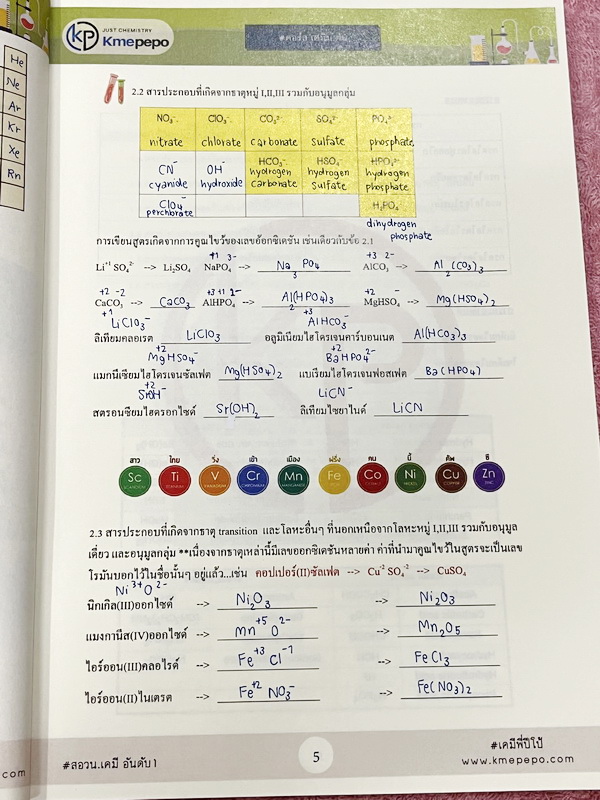 He
Ne
Ar
Kr
Xe
Rn
KP JUST CHEMISTRY
Kmepepo
2.2 สารประกอบที่เกิดจากธาตุหมู่ I,II,III รวมกับอนุมูลกลุ่ม
NO₃⁻ ClO₃⁻ CO₃²⁻ SO₄²⁻ PO₄³⁻
nitrate chlorate carbonate sulfate phosphate
CN⁻ OH⁻ HCO₃⁻ HSO₄⁻ HPO₄²⁻
cyanide hydroxide hydrogen carbonate hydrogen sulfate hydrogen phosphate
ClO₄⁻ H₂PO₄⁻
perchlorate
dihydrogen phosphate
การเขียนสูตรเกิดจากการคูณไขว้ของเลขอ๊อกซิเดชัน เช่นเดียวกับข้อ 2.1
+1 3- +3 2-
Li⁺¹ SO₄²⁻ --> Li₂SO₄ NaPO₄ --> Na₃PO₄ AlCO₃ --> Al₂(CO₃)₃
+2 -2 +3 +1 2- +2
CaCO₃ --> CaCO₃ AlHPO₄ --> Al₂(HPO₄)₃ MgHSO₄ --> Mg(HSO₄)₂
+1 +3
LiClO₃⁻ AlHCO₃⁻
ลิเทียมคลอเรต LiClO₃ อลูมิเนียมไฮโดรเจนคาร์บอนเนต Al(HCO₃)₃
+2 +2
MgHSO₄⁻ BaHPO₄²⁻
แมกนีเซียมไฮโดรเจนซัลเฟต Mg(HSO₄)₂ แบเรียมไฮโดรเจนฟอสเฟต Ba(HPO₄)
+2
SrOH⁻ LiCN⁻
สตรอนเซียมไฮดรอกไซด์ Sr(OH)₂ ลิเทียมไซยาไนด์ LiCN
สาว ไทย วิ่ง เข้า เมือง ฝรั่ง คน นี้ คัพ ซี
Sc Ti V Cr Mn Fe Co Ni Cu Zn
SCANDIUM TITANIUM VANADIUM CHROMIUM MANGANESE IRON COBALT NICKEL COPPER ZINC
2.3 สารประกอบที่เกิดจากธาตุ transition และโลหะอื่นๆ ที่นอกเหนือจากโลหะหมู่ I,II,III รวมกับอนุมูล
เดี่ยว และอนุมูลกลุ่ม **เนื่องจากธาตุเหล่านี้มีเลขออกซิเดชันหลายค่า ค่าที่นำมาคูณไขว้ในสูตรจะเป็นเลข
โรมันบอกไว้ในชื่อนั้นๆ อยู่แล้ว...เช่น คอปเปอร์(II)ซัลเฟต --> Cu⁺² SO₄⁻² --> CuSO₄
Ni³⁺O²⁻
นิกเกิล(III)ออกไซด์ --> Ni₂O₃ --> Ni₂O₃
แมงกานีส(IV)ออกไซด์ --> Mn⁺⁵ O²⁻ --> Mn₂O₅
ไอร์ออน(III)คลอไรด์ --> Fe⁺³ Cl⁻¹ --> FeCl₃
ไอร์ออน(II)ไนเตรต --> Fe⁺² NO₃⁻ --> Fe(NO₃)₂
com
#สอวน.เคมี อันดับ1
5
#เคมีพี่ปีโป้
www.kmepepo.com